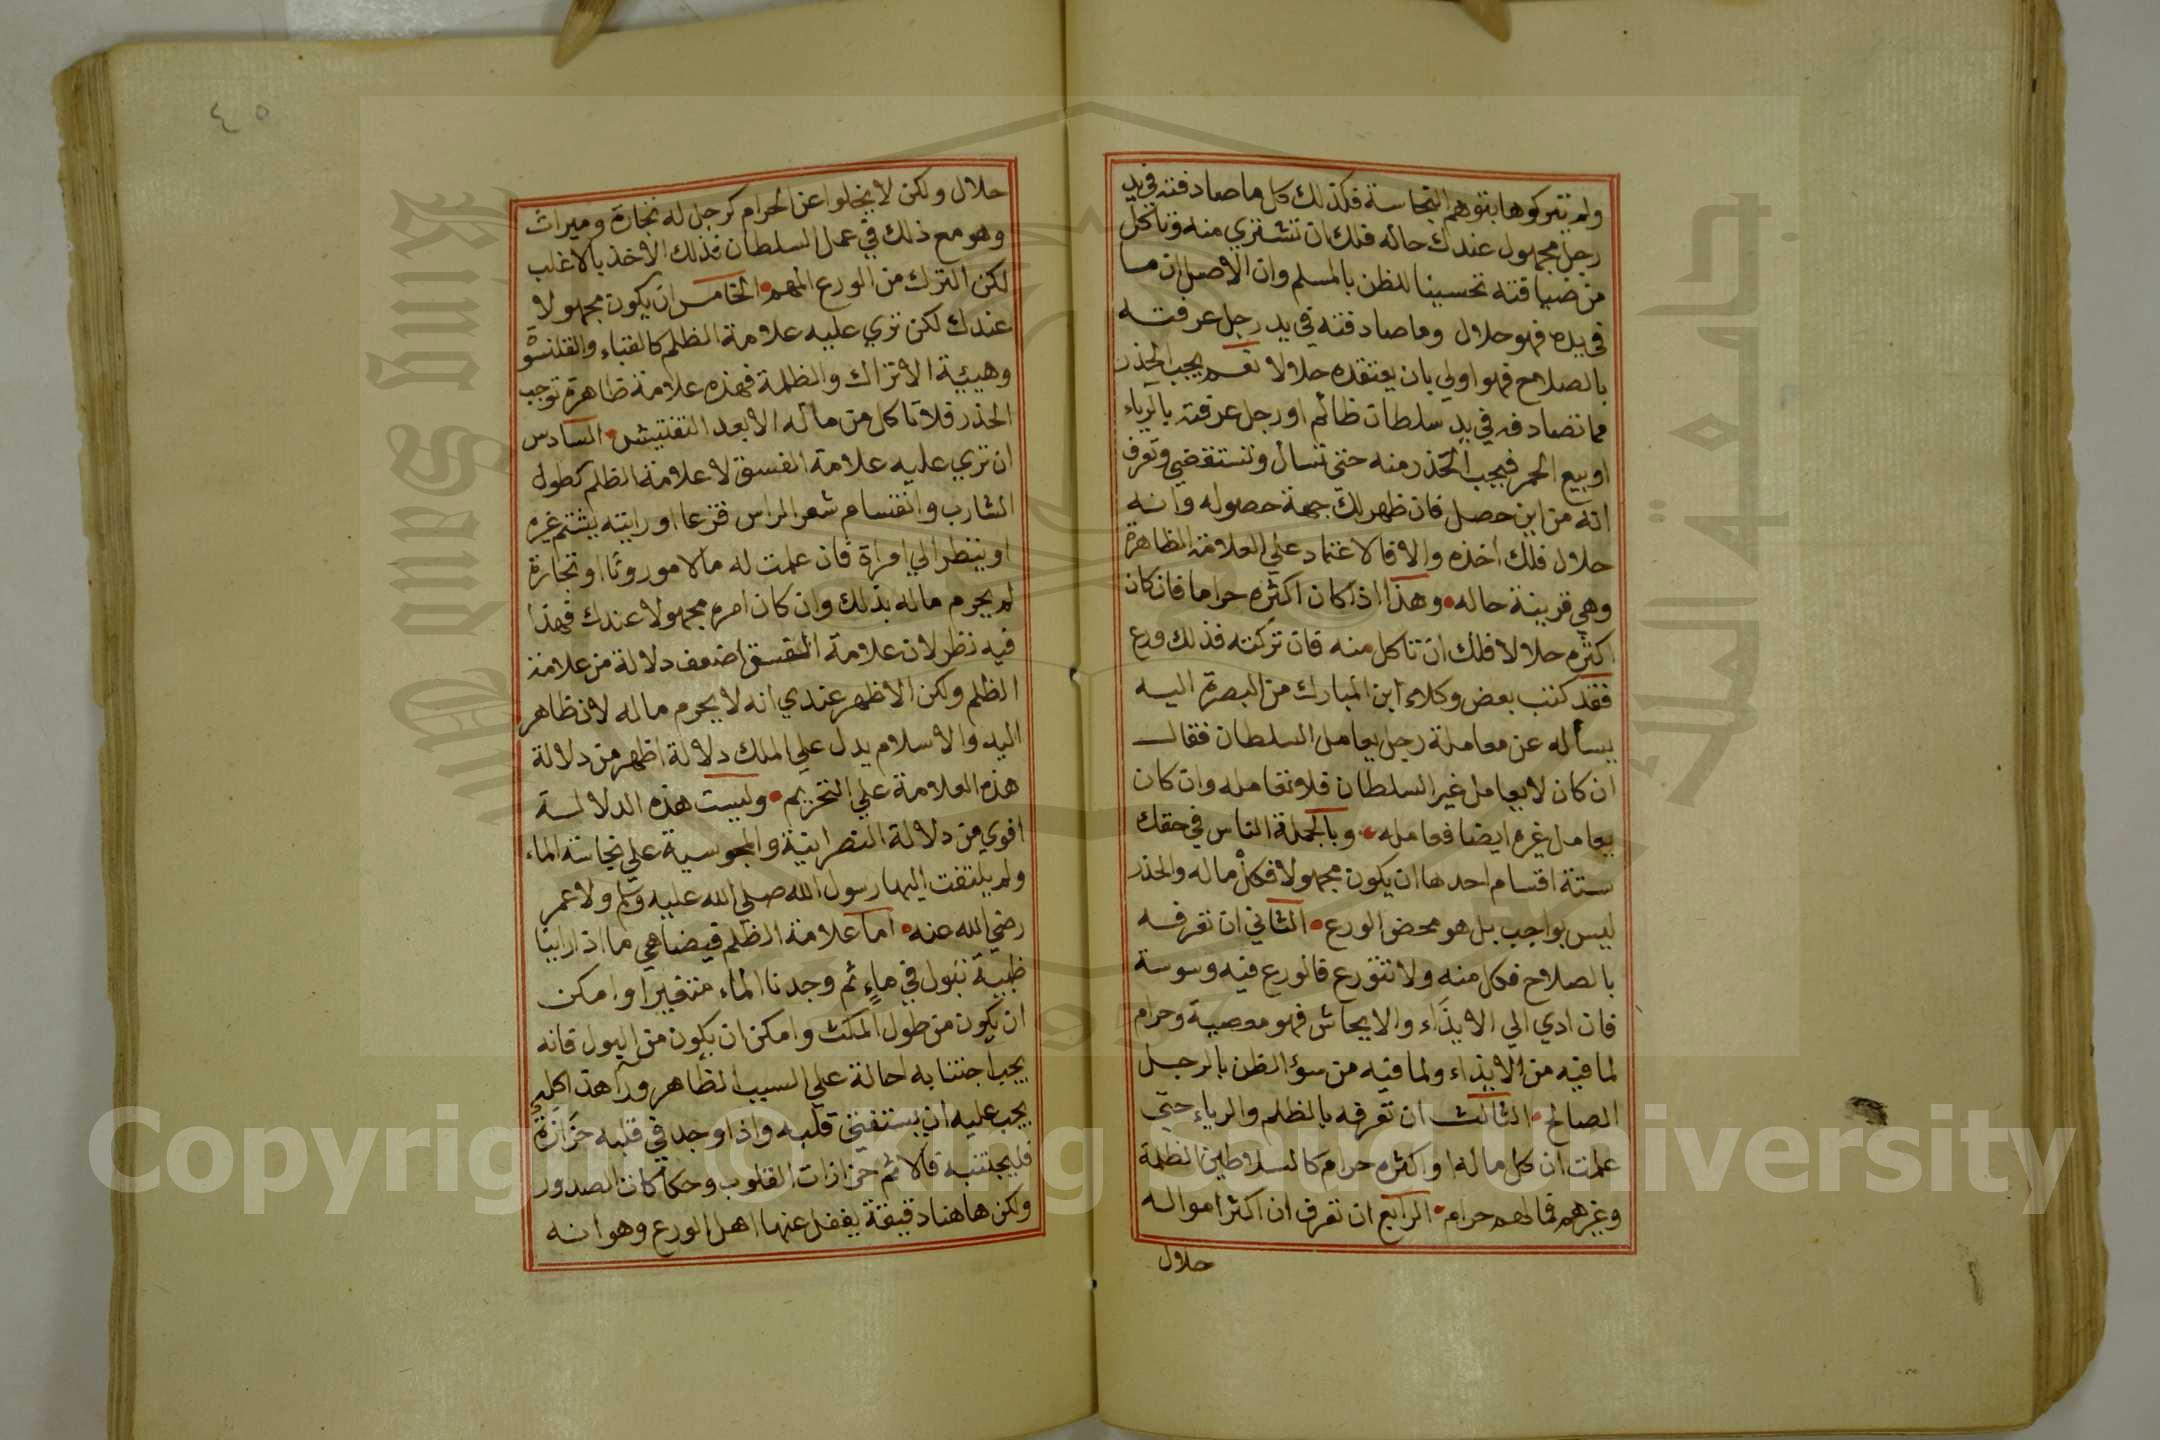 ولم يتركوها بتوهم النجاسة فكذلك كل ما صادفته في يد
رجل مجهول عندك حاله فلك ان تشتري منه وتاكل
من ضيافته تحسينا للظن بالمسلم وان الاصل ان ما
في يده فهو حلال وما صادفته في يد رجل عرفته
بالصلاح فهو اولي بان يعتقده حلالا نعم يجب الحذر
مما تصادفه في يد سلطان ظالم او رجل عرفته بالرياء
او بيع الخمر فيجب الحذر منه حتي تسال وتستقضي وتعرف
انه من اين حصل فان ظهر لك جهة حصوله وانه
حلال فلك اخذه والا فالاعتماد علي العلامة الظاهرة
وهي قرينة حاله وهذا اذا كان اكثره حراما فان كان
اكثره حلالا فلك ان تاكل منه فان تركته فذلك ورع
فقد كتب بعض وكلاء ابن المبارك من البصرة اليه
يسأله عن معاملة رجل يعامل السلطان فقال
ان كان لا يعامل غير السلطان فلا تعامله وان كان
يعامل غيره ايضا فعامله وبالجملة الناس في حقك
ستة اقسام احدها ان يكون مجهولا فكل ماله والحذر
ليس بواجب بل هو محض الورع الثاني ان تعرفه
بالصلاح فكل منه ولا تتورع فالورع فيه وسوسة
فان ادي الي الايذاء والايحاش فهو معصية وحرام
لما فيه من الايذاء ولما فيه من سوء الظن بالرجل
الصالح الثالث ان تعرفه بالظلم والرياء حتي
علمت ان كل ماله او اكثره حرام كالسلاطين الظلمة
وغيرهم فمالهم حرام الرابع ان تعرف ان اكثر امواله
حلال
٤٥
حلال ولكن لا يخلوا عن الحرام كرجل له تجارة وميراث
وهو مع ذلك في عمل السلطان فذلك الاخذ بالاغلب
لكن الترك من الورع المهم الخامس ان يكون مجهولا
عندك لكن تري عليه علامة الظلم كالقباء والقلنسوة
وهيئة الاتراك والظلمة فهذه علامة ظاهرة توجب
الحذر فلا تاكل من ماله الا بعد التفتيش السادس
ان تري عليه علامة الفسق لا علامة الظلم كطول
الشارب وانقسام شعر الراس قزعا او رايته يشتم غيره
او ينظر الي امراة فان علمت له مالا موروثا او تجارة
لم يحرم ماله بذلك وان كان امره مجهولا عندك فهذا
فيه نظر لان علامة الفسق اضعف دلالة من علامة
الظلم ولكن الاظهر عندي انه لا يحرم ماله لان ظاهر
اليد والاسلام يدل علي الملك دلالة اظهر من دلالة
هذه العلامة علي التحريم وليست هذه الدلالة
اقوي من دلالة النصرانية والمجوسية علي نجاسة الماء
ولم يلتفت اليها رسول الله صلي الله عليه وسلم ولا عمر
رضي الله عنه اما علامة الظلم فيضاهي ما اذا راينا
ظبية تبول في ماء ثم وجدنا الماء متغيرا وامكن
ان يكون من طول المكث وامكن ان يكون من البول فانه
يجب اجتنابه احالة علي السبب الظاهر وراء هذا كله
يجب عليه ان يستفتي قلبه واذا وجد في قلبه حزازة
فليجتنبه فالاثم حزازات القلوب وحكاكات الصدور
ولكن هاهنا دقيقة يغفل عنها اهل الورع وهو انه
Copyright © King Saud University
King Saud University
جامعة الملك سعود